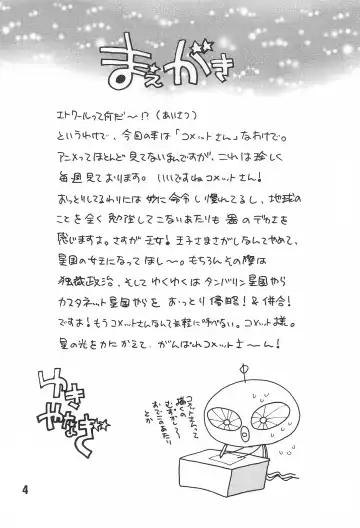 まえがき
エトワールって何だ～!?(あいさつ)
というわけで、今回の本は「コメットさん」なわけで。
アニメってほとんど見てないまんですが、これは珍しく
毎週見ております。いいですねコメットさん!
おっとりしてるわりには妙に命令し慣れてるし、地球の
ことを全く勉強してこないあたりも器のデカさを
感じますよ。さすが王女!王子さまさがしなんてやめて、
星国の女王になってほし～。もちろんその際は
独裁政治、そしてゆくゆくはタンバリン星国やら
カスタネット星国やらをおっとり侵略!&併合!
ですよ!もうコメットさんなんてお軽に呼べない。コメット様。
星の光をたにかえて、がんばれコメットさ～ん!
ゆき
やなぎ
コメットさんって
描くの
むずかし～
おでこのあたり
とか
4